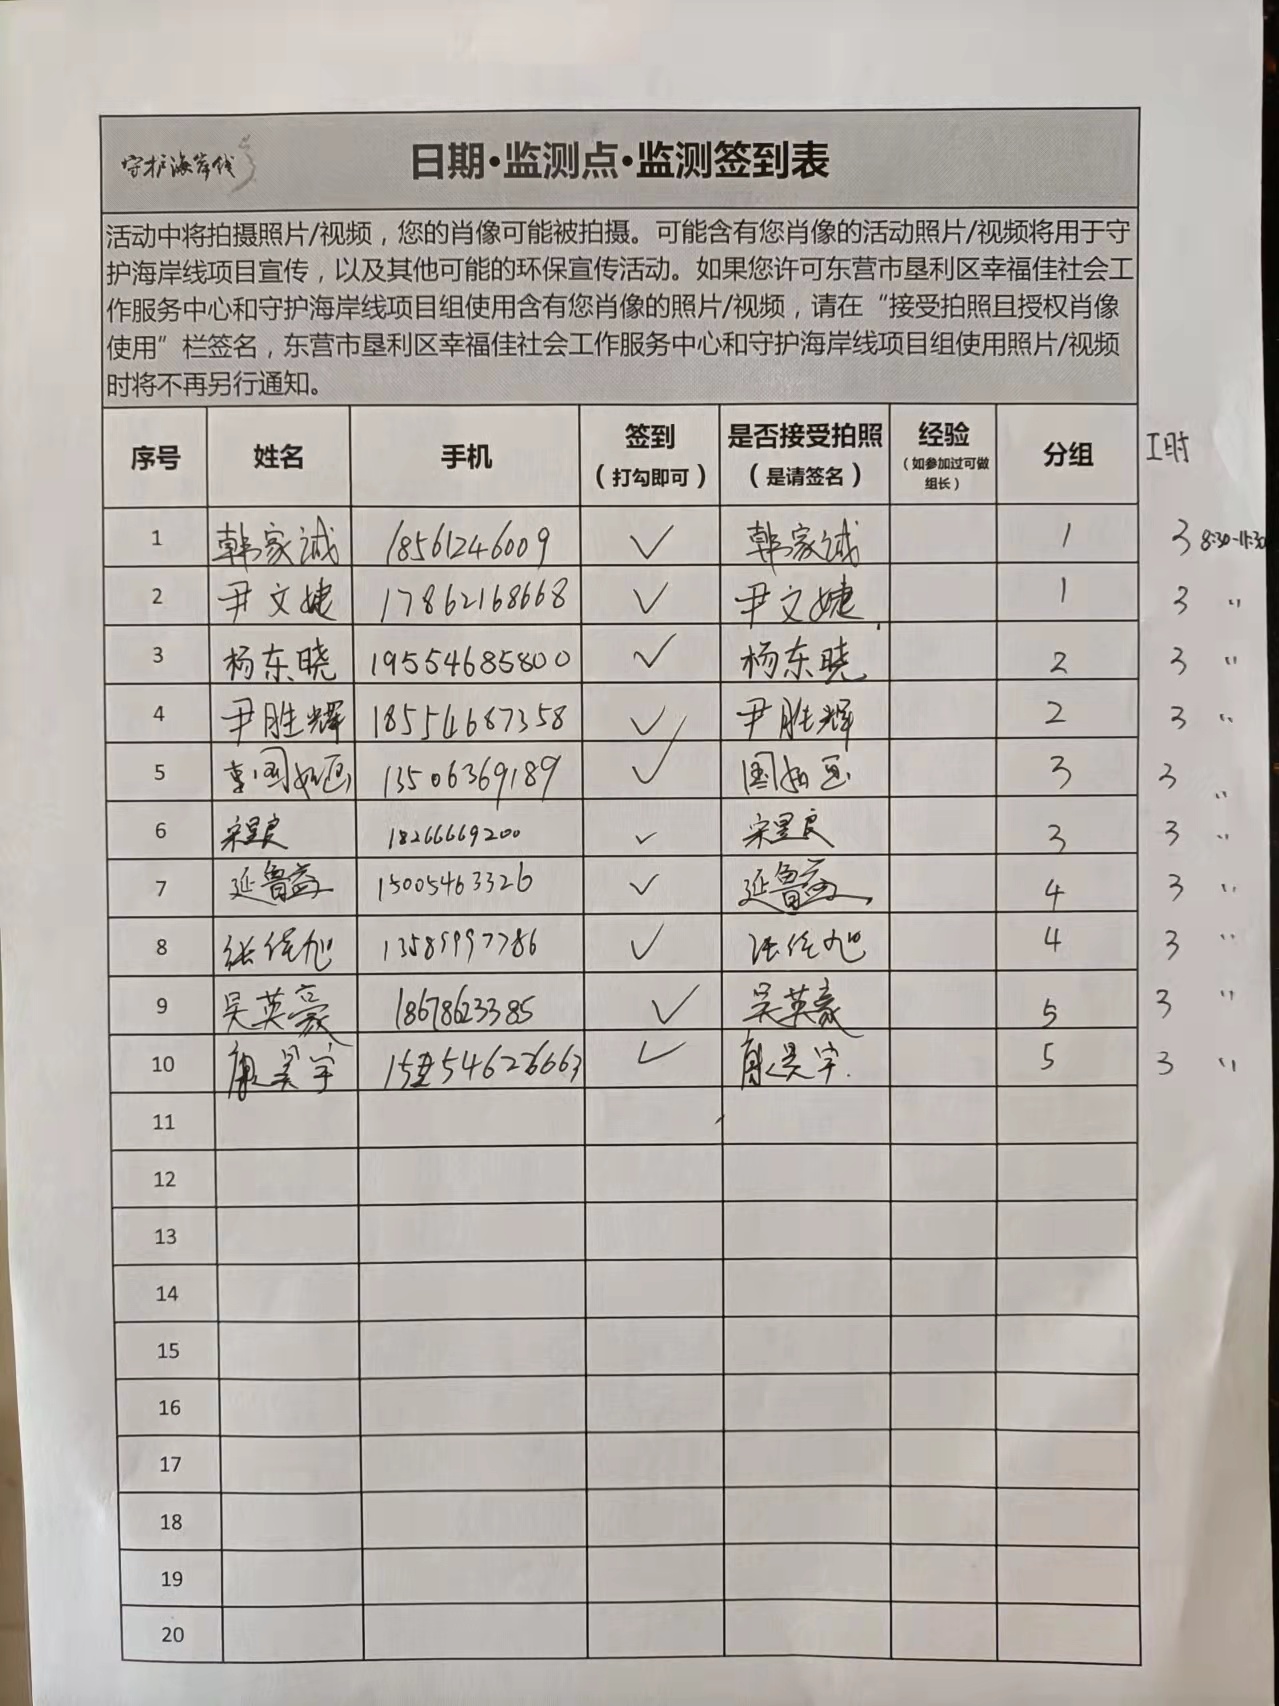 守护海岸线
日期·监测点·监测签到表
活动中将拍摄照片/视频，您的肖像可能被拍摄。可能含有您肖像的活动照片/视频将用于守
护海岸线项目宣传，以及其他可能的环保宣传活动。如果您许可东营市垦利区幸福佳社会工
作服务中心和守护海岸线项目组使用含有您肖像的照片/视频，请在“接受拍照且授权肖像
使用”栏签名，东营市垦利区幸福佳社会工作服务中心和守护海岸线项目组使用照片/视频
时将不再另行通知。
序号 姓名 手机 签到（打勾即可） 是否接受拍照（是请签名） 经验（如参加过可做组长） 分组 工时
1 韩家诚 18561246009 ✓ 韩家诚 1 3 8:30-11:30
2 尹文婕 17862168668 ✓ 尹文婕 1 3 〃
3 杨东晓 19554685800 ✓ 杨东晓 2 3 〃
4 尹胜辉 18554687358 ✓ 尹胜辉 2 3 〃
5 13506369189 ✓ 3 3 〃
6 18266669200 ✓ 3 3 〃
7 延鲁益 15005463326 ✓ 延鲁益 4 3 〃
8 ✓ 4 3 〃
9 吴英豪 18678623385 ✓ 吴英豪 5 3 〃
10 ✓ 5 3 〃
11
12
13
14
15
16
17
18
19
20